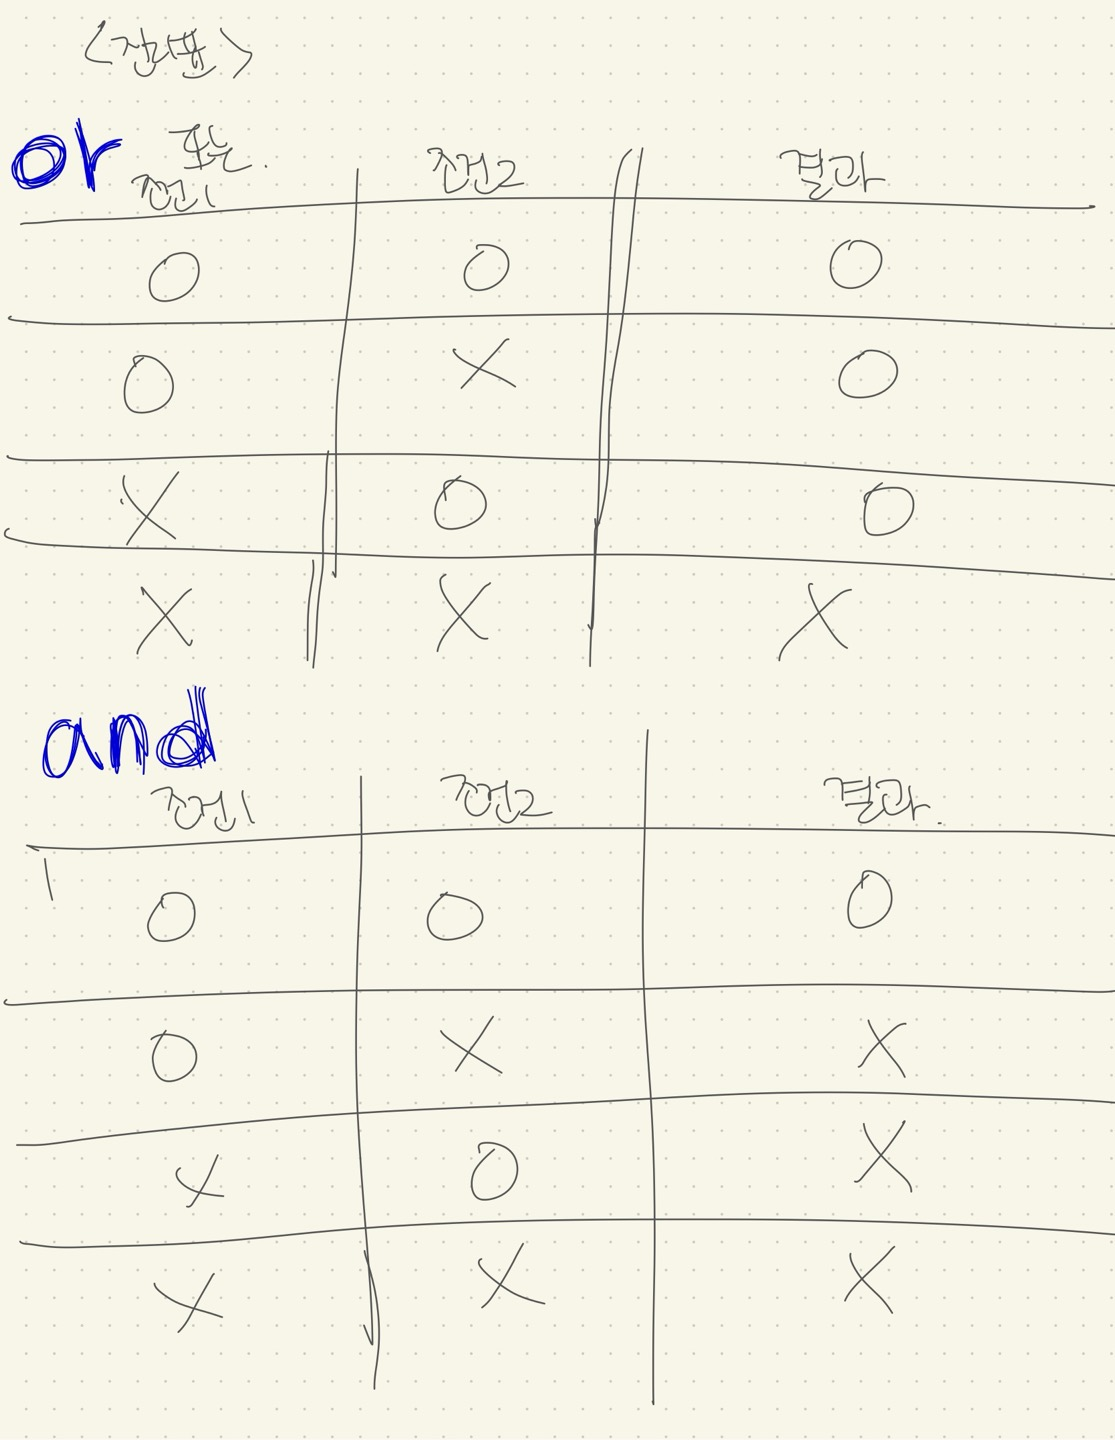 or
조건1 조건2 결과
O O O
O X O
X O O
X X X
and
조건1 조건2 결과.
O O O
O X X
X O X
X X X